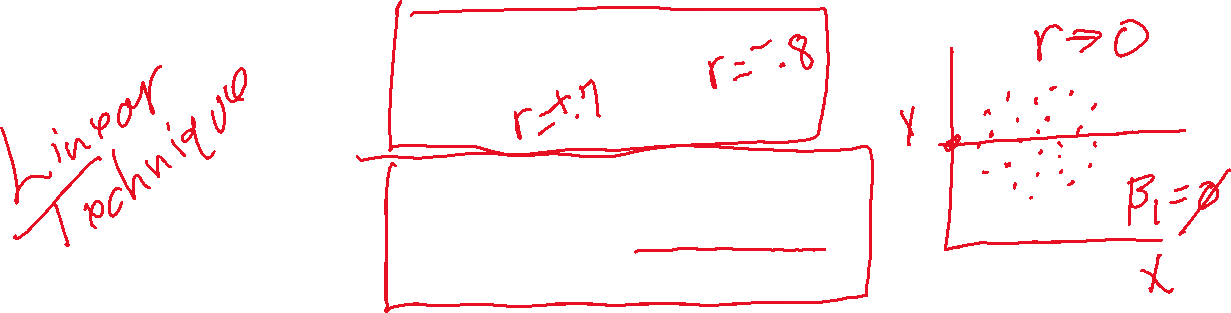 Linear
Technique
r=+.7
r=-.8
r→0
Y
β₁=0
X